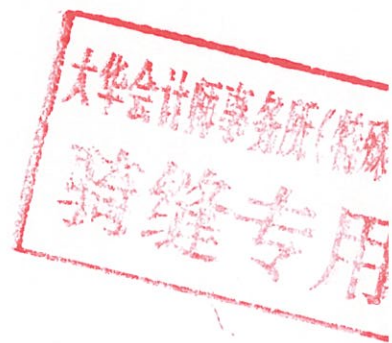 大华会计师事务所(特殊
骑缝专用